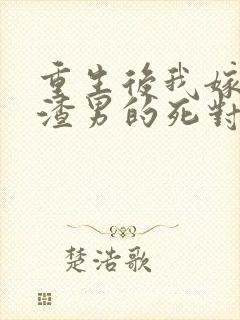 重生後我嫁
渣男的死對
楚浩歌